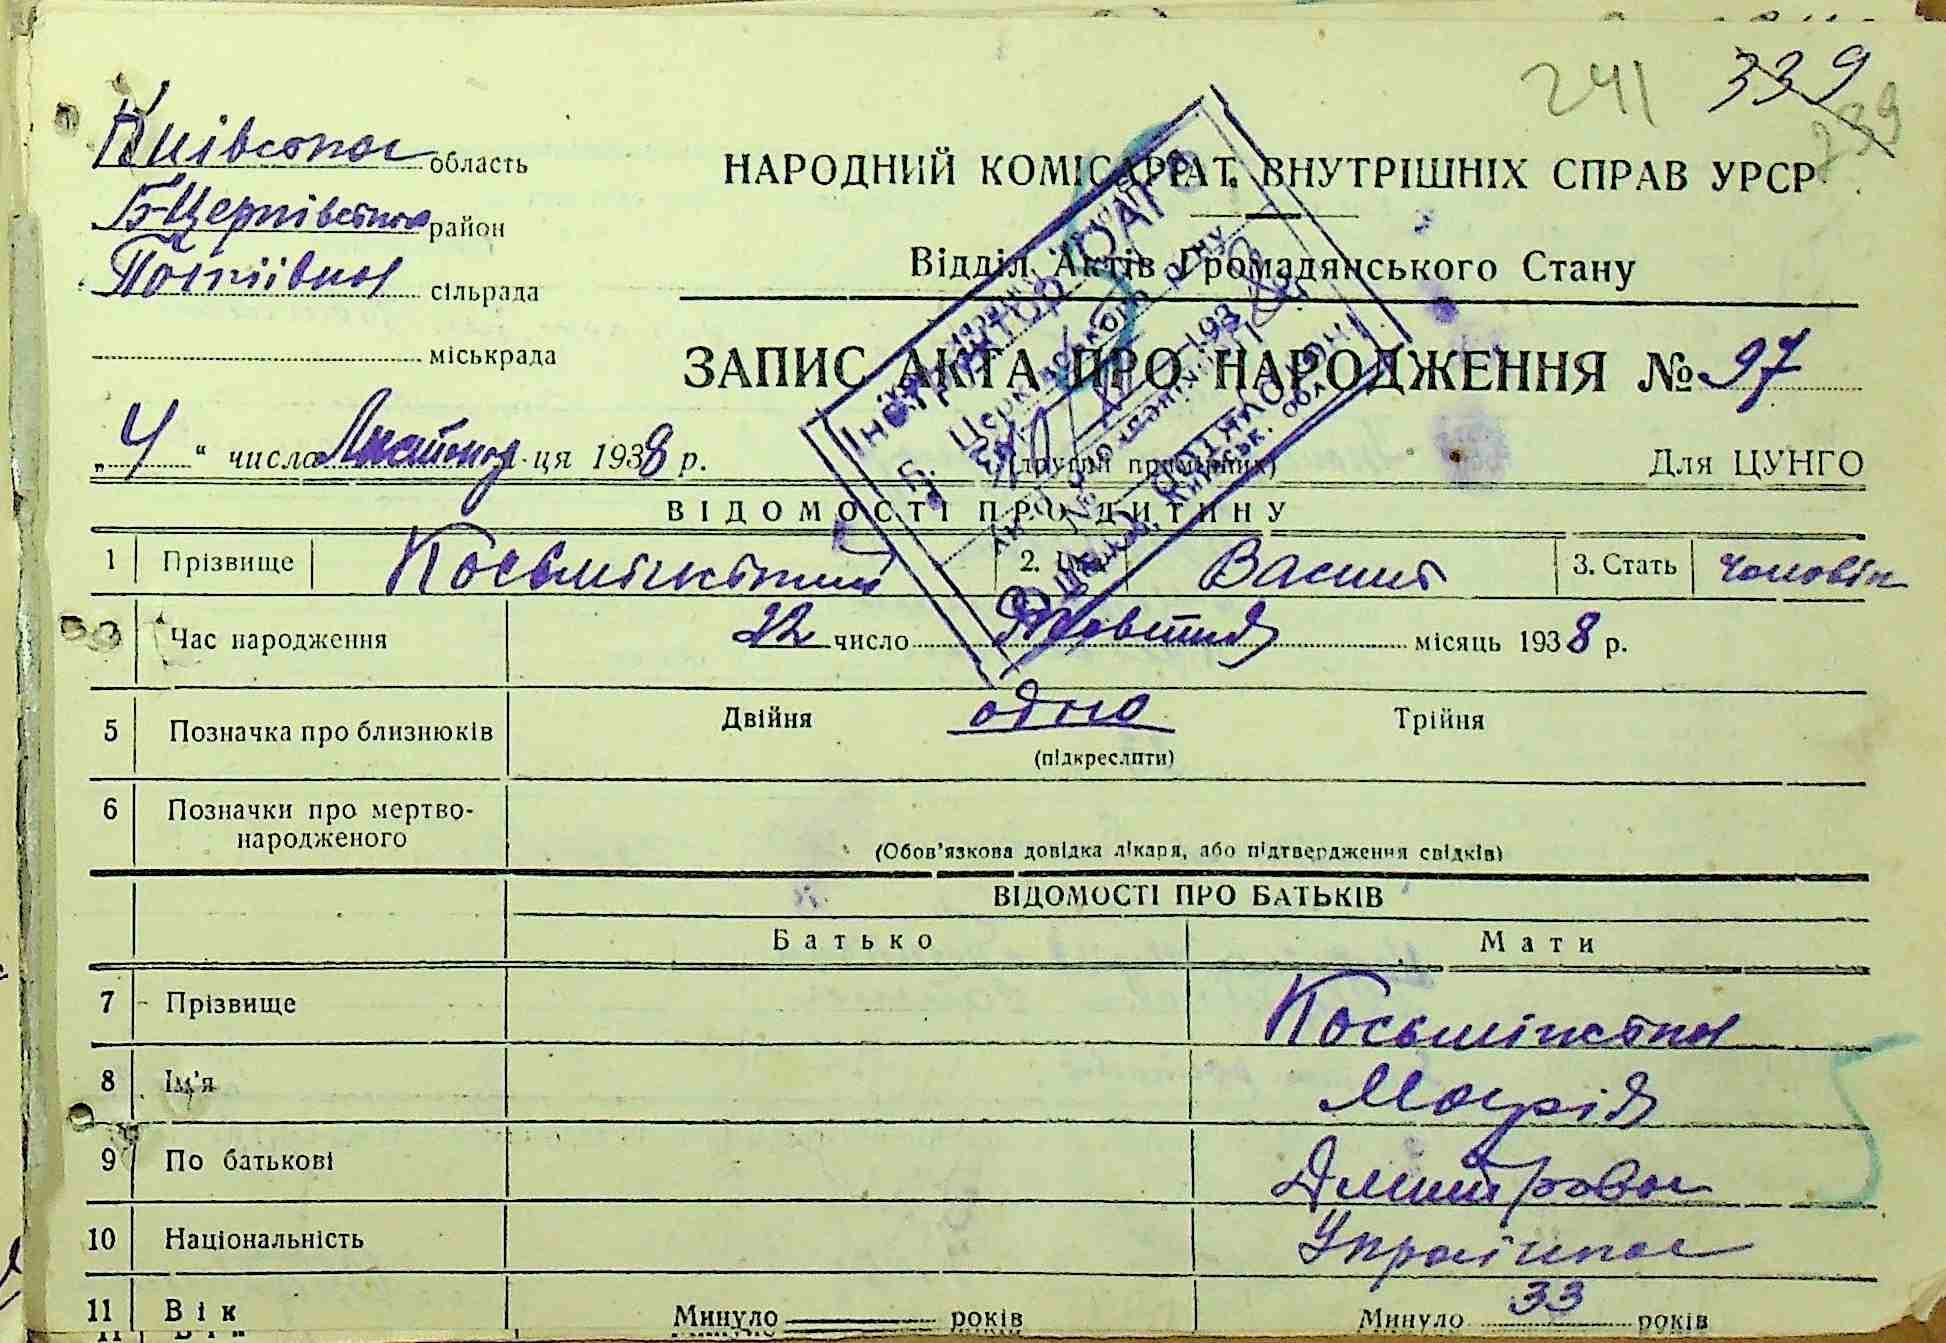 241 339
239
Київська область
Б-Церківська район
сільрада
міськрада
НАРОДНИЙ КОМІСАРІАТ ВНУТРІШНІХ СПРАВ УРСР
Відділ Актів Громадянського Стану
ЗАПИС АКТА ПРО НАРОДЖЕННЯ № 97
„ 4 “ числа Листопада ц-ця 1938 р.
(другий примірник)
Для ЦУНГО
ВІДОМОСТІ ПРО ДИТИНУ
1 Прізвище 2. Ім'я Василь 3. Стать чоловік
Час народження 22 число Жовтня місяць 1938 р.
5 Позначка про близнюків Двійня одно Трійня
(підкреслити)
6 Позначки про мертво-
народженого
(Обов'язкова довідка лікаря, або підтвердження свідків)
ВІДОМОСТІ ПРО БАТЬКІВ
Батько Мати
7 Прізвище
8 Ім'я Марія
9 По батькові Дмитрова
10 Національність Українка
11 Вік Минуло років Минуло 33 років